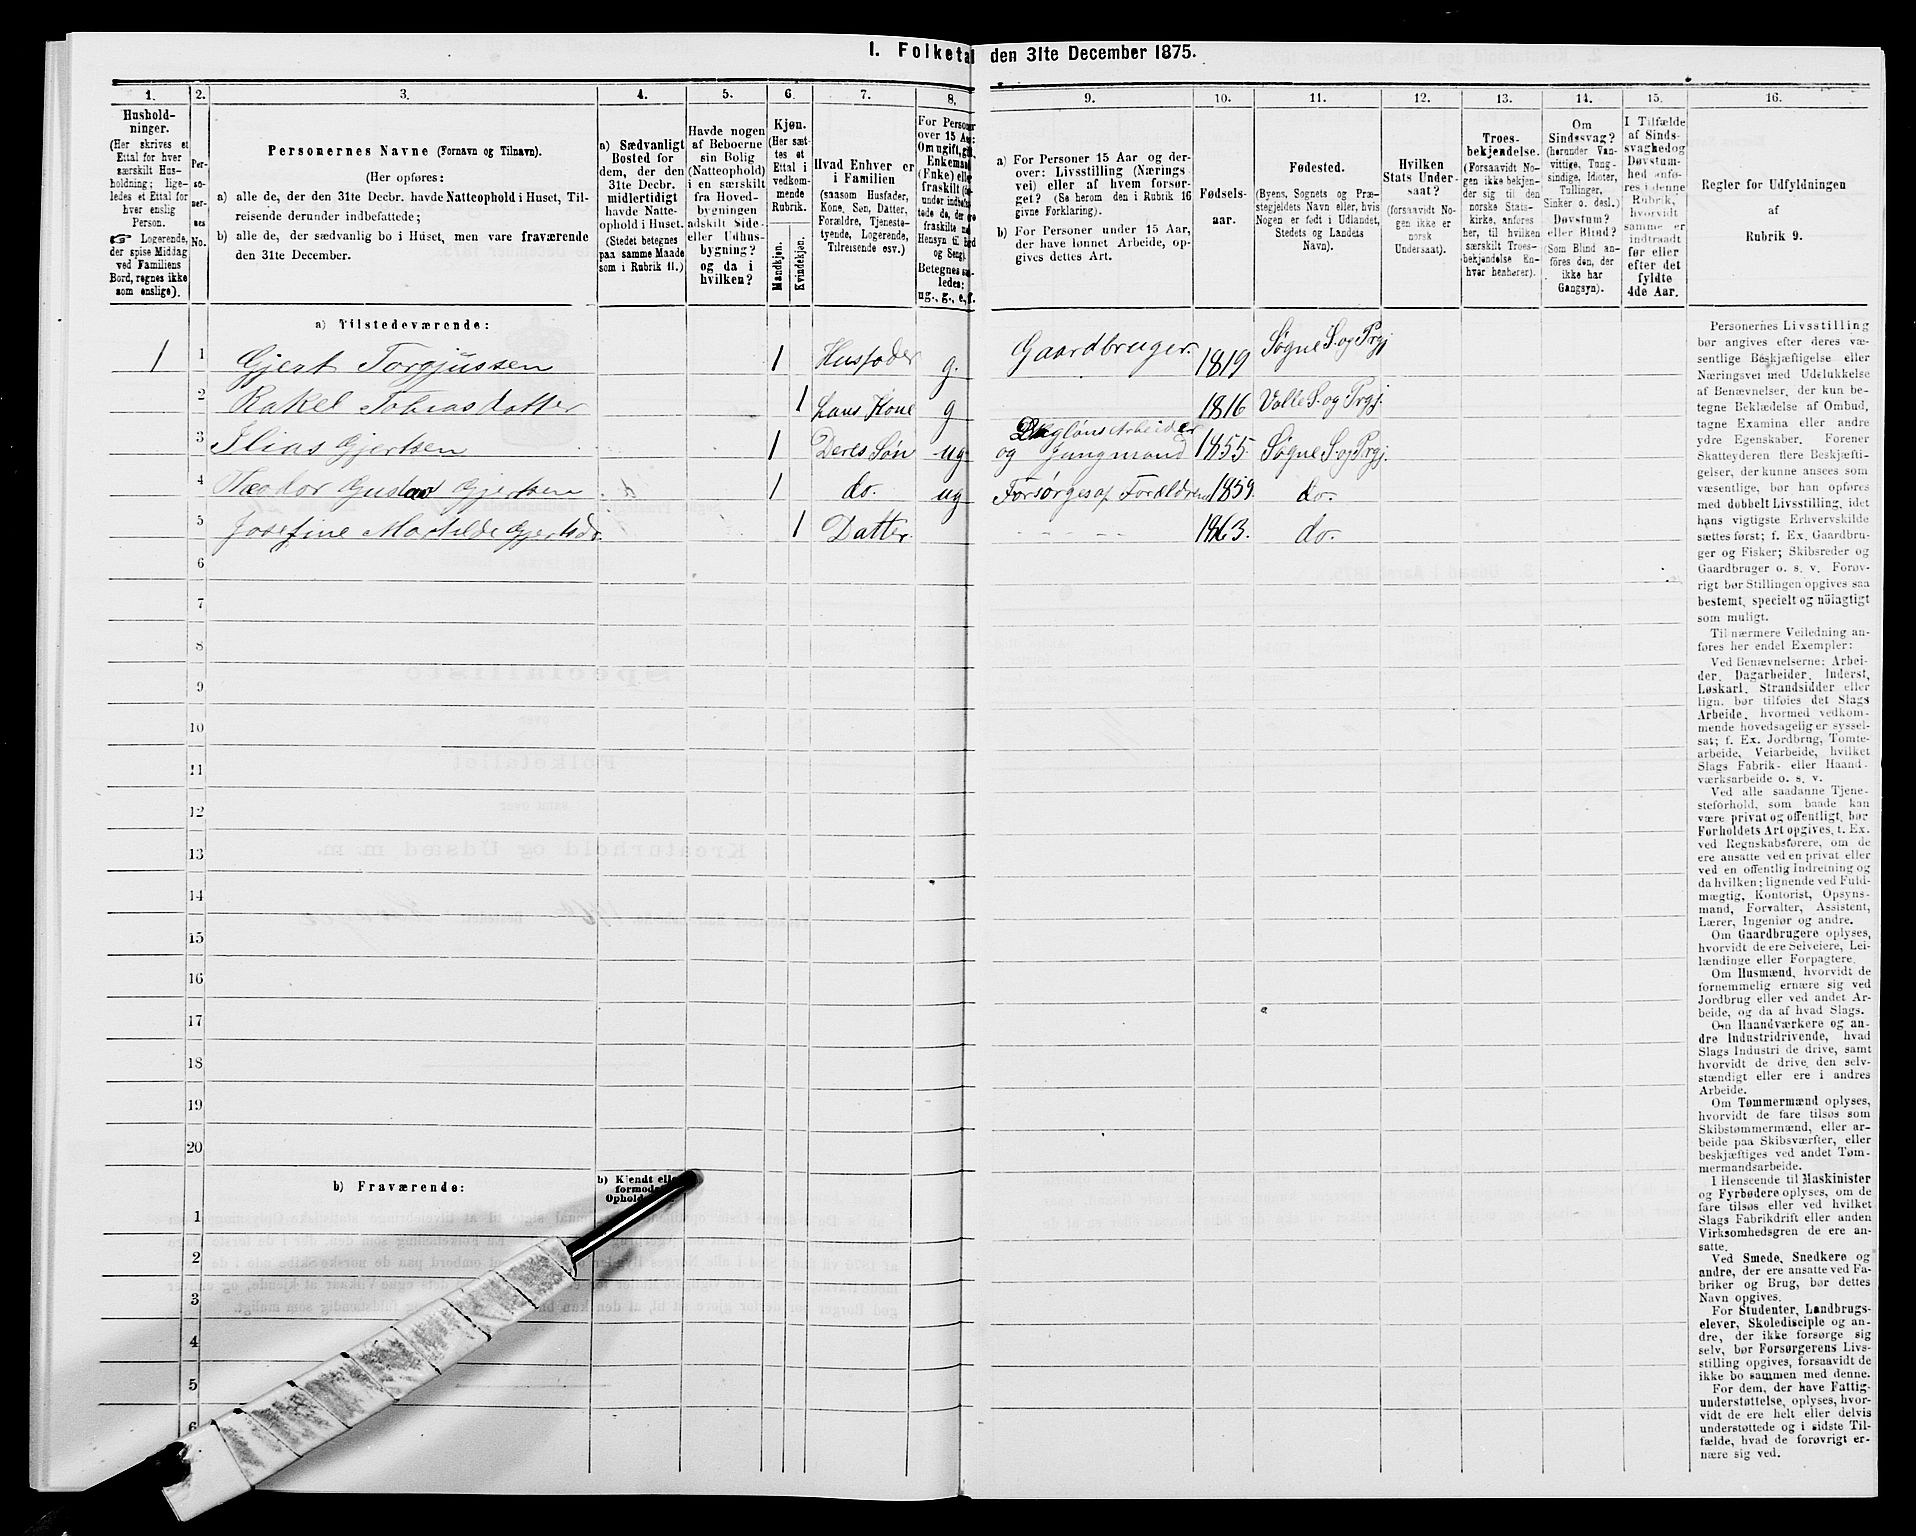 1. Folketal den 31te December 1875.
1.
Hushold-
ninger.
(Her skrives et
Ettal for hver
særskilt Hus-
holdning; lige-
ledes et Ettal for
hver enslig
Person.
☞ Logerende,
der spise Middag
ved Familiens
Bord, regnes ikke
som enslige).
2.
Per-
so-
ner-
nes
No.
3.
Personernes Navne (Fornavn og Tilnavn).
(Her opføres:
a) alle de, der den 31te Decbr. havde Natteophold i Huset, Til-
reisende derunder indbefattede;
b) alle de, der sædvanlig bo i Huset, men vare fraværende
den 31te December.
4.
a) Sædvanligt
Bosted for
dem, der den
31te Decbr.
midlertidigt
havde Natte-
ophold i Huset.
(Stedet betegnes
paa samme Maade
som i Rubrik 11.)
5.
Havde nogen
af Beboerne
sin Bolig
(Natteophold)
i en særskilt
fra Hoved-
bygningen
adskilt Side-
eller Udhus-
bygning?
og da i
hvilken?
6.
Kjøn.
(Her sæt-
tes et
Ettal i
vedkom-
mende
Rubrik.
Mandkjøn.
Kvindekjøn.
7.
Hvad Enhver er
i Familien
(saasom Husfader,
Kone, Søn, Datter,
Forældre, Tjeneste-
tyende, Logerende,
Tilreisende osv.)
8.
For Personer
over 15 Aar:
Om ugift, gift,
Enkemand
(Enke) eller
fraskilt
ledes:
ug., g., e., f.
9.
a) For Personer 15 Aar og der-
over: Livsstilling (Nærings
vei) eller af hvem forsør-
get? (Se herom den i Rubrik 16
givne Forklaring).
b) For Personer under 15 Aar,
der have lønnet Arbeide, op-
gives dettes Art.
10.
Fødsels-
aar.
11.
Fødested.
(Byens, Sognets og Præ-
stegjeldets Navn eller, hvis
Nogen er født i Udlandet,
Stedets og Landets
Navn).
12.
Hvilken
Stats Under-
saat?
(forsaavidt No-
gen ikke er
norsk
Undersaat).
13.
Troes-
bekjendelse.
(Forsaavidt No-
gen ikke bekjen-
der sig til den
norske Stats-
kirke, anføres
her, til hvilken
særskilt Troes-
bekjendelse En-
hver henhører).
14.
Om
Sindssvag?
(herunder Van-
vittige, Tung-
sindige, Idioter,
Tullinger,
Sinker o. desl.)
Døvstum?
eller Blind?
(Som Blind an-
føres den, der
ikke har
Gangsyn).
15.
I Tilfælde
af Sinds-
svaghed og
Døvstum-
hed anfø-
res i denne
Rubrik,
hvorvidt
samme er
indtraadt
før eller
efter det
fyldte
4de Aar.
16.
Regler for Udfyldningen
af
Rubrik 9.
a) Tilstedeværende:
1 1 Gjert Torgjussen 1 Husfader g. Gaardbruger. 1819 Søgne S. og Prgj
2 Rakel Tobiasdatter 1 hans Kone g 1816 Valle S. og Prgj.
3 Elias Gjertsen 1 Deres Søn ug Dagløns Arbeider
og Jungmand 1855 Søgne S. og Prgj.
4 Theodor Gustav Gjertsen 1 do. ug Forsørges af Forældrene 1859. do.
5 Josefine Mathilde Gjertsdr 1 Datter 1863. do.
6
7
8
9
10
11
12
13
14
15
16
17
18
19
20
b) Fraværende:
b) Kjendt eller
formodet
Ophold
1
2
3
4
5
6
Personernes Livsstilling
bør angives efter deres væ-
sentlige Beskjæftigelse eller
Næringsvei med Udelukkelse
af Benævnelser, der kun be-
tegne Beklædelse af Ombud,
tagne Examina eller andre
ydre Egenskaber. Forener
Skatteyderen flere Beskjæfti-
gelser, der kunne ansees som
væsentlige, bør han opføres
med dobbelt Livsstilling, idet
hans vigtigste Erhvervskilde
sættes først; f. Ex. Gaardbru-
ger og Fisker; Skibsreder og
Gaardbruger o. s. v. Forøv-
rigt bør Stillingen opgives saa
bestemt, specielt og nöiagtigt
som muligt.
Til nærmere Veiledning an-
føres her endel Exempler:
Ved Benævnelserne: Arbei-
der, Dagarbeider, Inderst,
Løskarl, Strandsidder eller
lign. bør tilføies det Slags
Arbeide, hvormed vedkom-
mende hovedsagelig er syssel-
sat; f. Ex. Jordbrug, Tomte-
arbeide, Veiarbeide, hvilket
Slags Fabrik- eller Haand-
værksarbeide o. s. v.
Ved alle saadanne Tjene-
steforhold, som baade kan
være privat og offentligt, bør
Forholdets Art opgives, t. Ex.
ved Regnskabsførere, om de
ere ansatte ved en privat eller
ved en offentlig Indretning og
da hvilken; lignende ved Fuld-
mægtig, Kontorist, Opsyns-
mand, Forvalter, Assistent,
Lærer, Ingeniør og andre.
Om Gaardbrugere oplyses,
hvorvidt de ere Selveiere, Lei-
lændinge eller Forpagtere.
Om Husmænd, hvorvidt de
fornemmelig ernære sig ved
Jordbrug eller ved andet Ar-
beide, og da af hvad Slags.
Om Haandværkere og an-
dre Industridrivende, hvad
Slags Industri de drive, samt
hvorvidt de drive den selv-
stændigt eller ere i andres
Arbeide.
Om Tømmermænd oplyses,
hvorvidt de fare tilsøs som
Skibstømmermænd, eller ar-
beide paa Skibsværfter, eller
beskjæftiges ved andet Tøm-
mermandsarbeide.
I Henseende til Maskinister
og Fyrbødere oplyses, om de
fare tilsøs eller ved hvilket
Slags Fabrikdrift eller anden
Virksomhedsgren de ere an-
satte.
Ved Smede, Snedkere og
andre, der ere ansatte ved Fa-
briker og Brug, bør dettes
Navn opgives.
For Studenter, Landbrugs-
elever, Skoledisciple og an-
dre, der ikke forsørge sig
selv, bør Forsørgerens Livs-
stilling opgives, forsaavidt de
ikke bo sammen med denne.
For dem, der have Fattig-
understøttelse, oplyses, hvor-
vidt de ere helt eller delvis
understøttede og i sidste Til-
fælde, hvad de forøvrigt er-
nære sig ved.